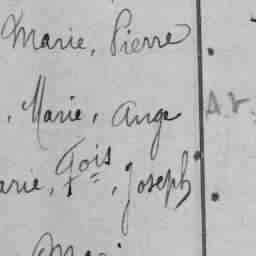 Marie, Pierre
, Marie, Ange
arie, Fois, Joseph
Mari